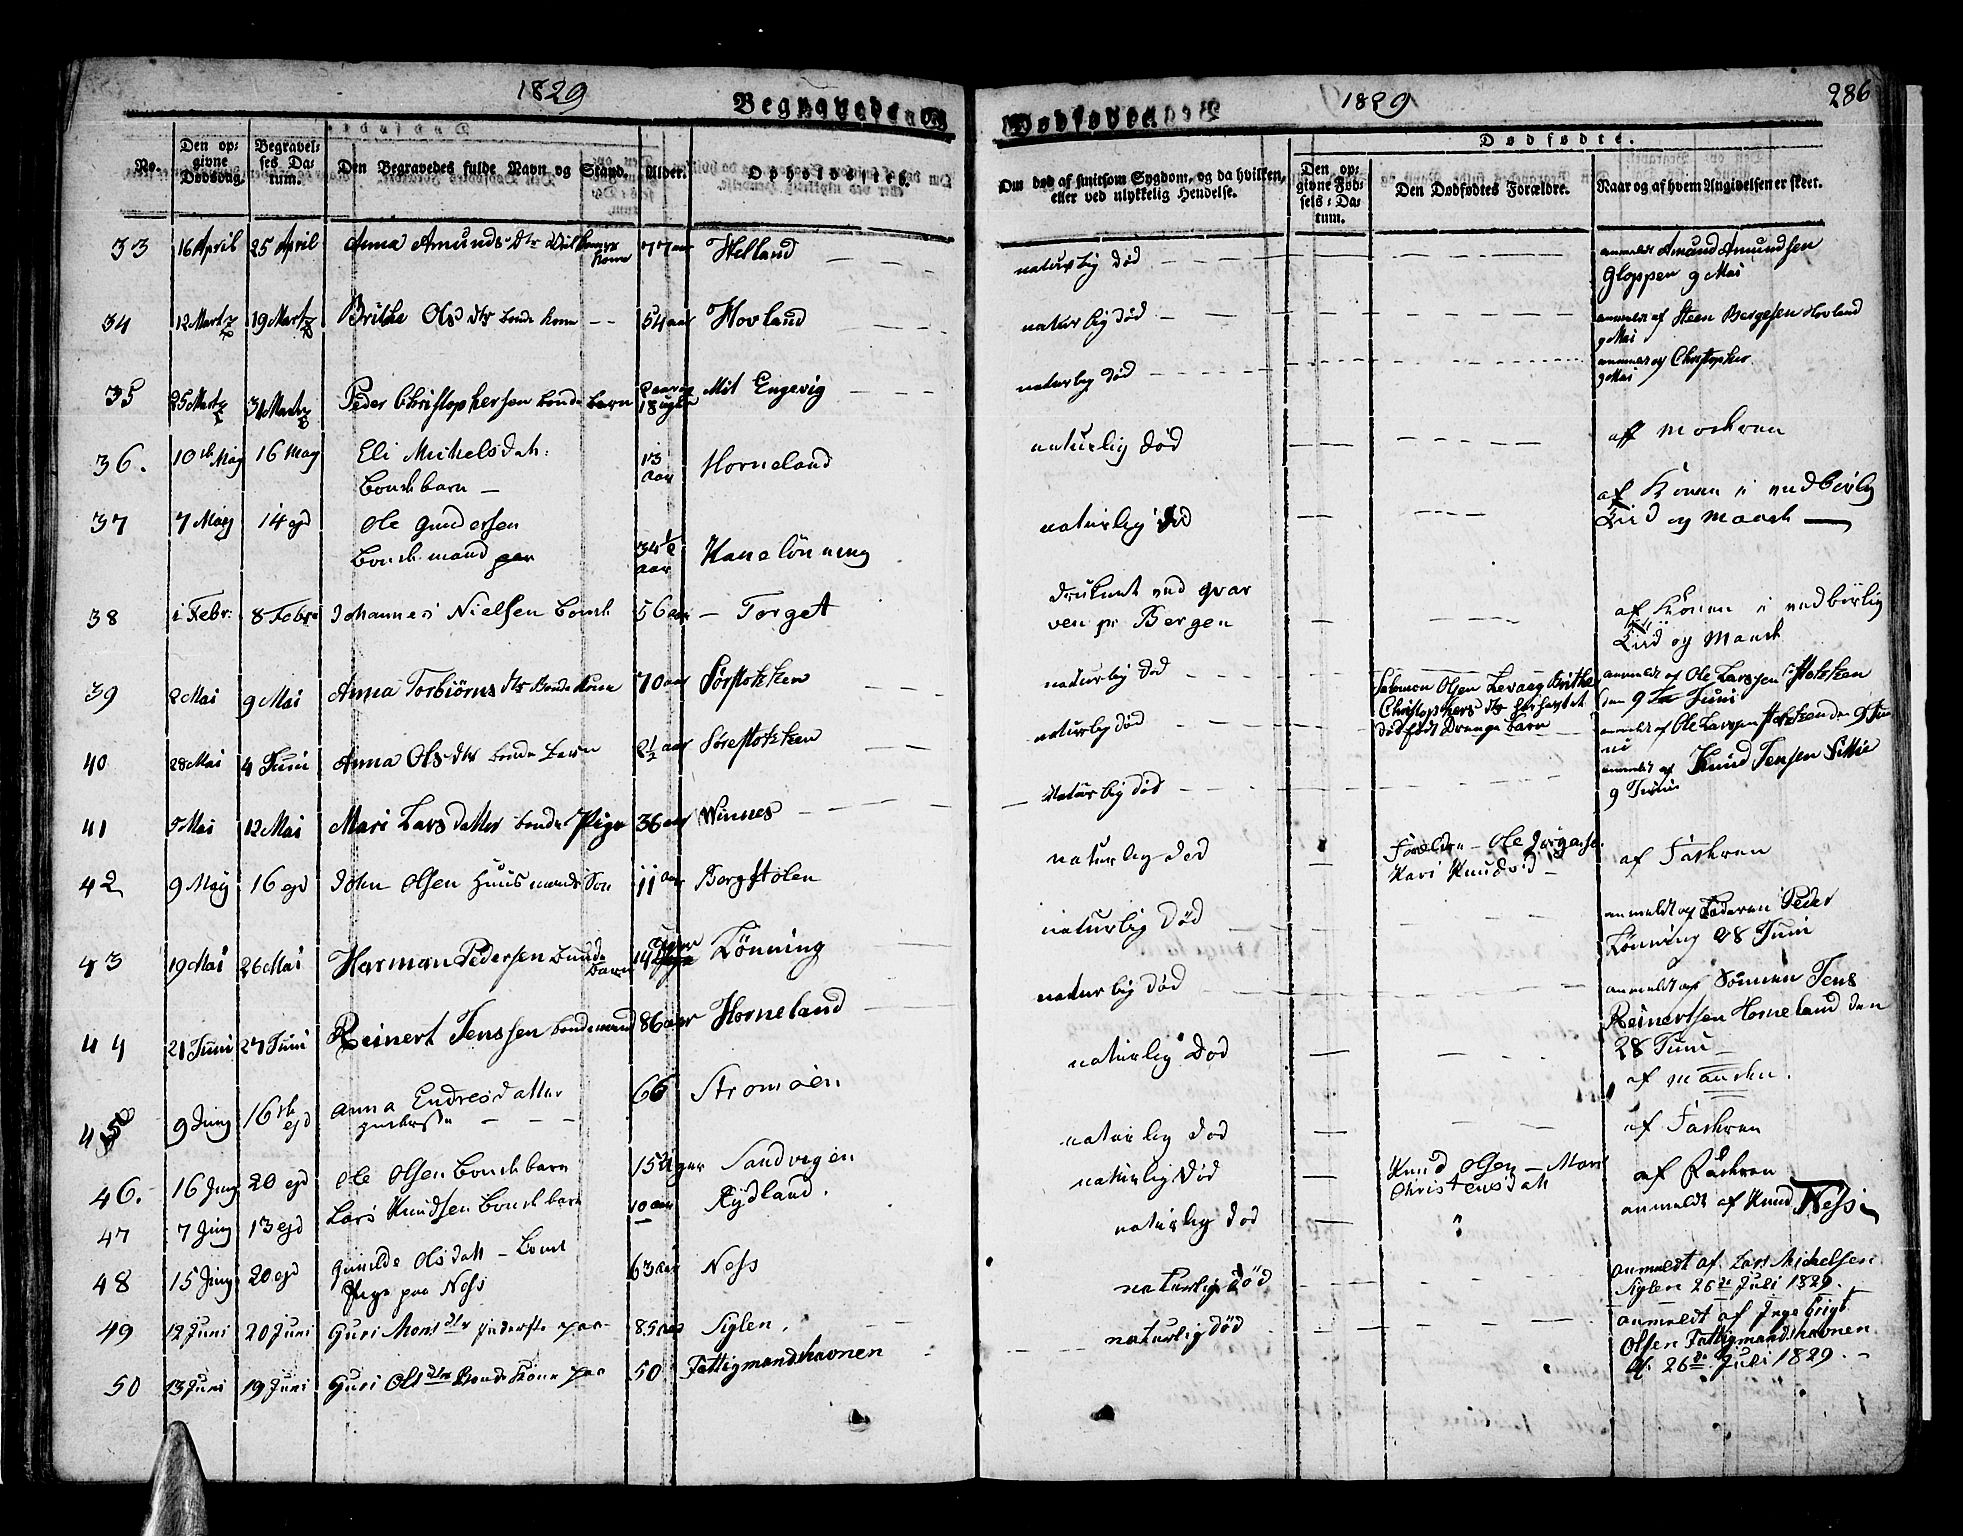 1829 Begravede og
No.
Den opgivne Dødsdag.
Begravelses Datum.
Den Begravedes fulde Navn og Stand.
Alder.
Opholdssted.
33 16 April 25 April Anna Amunds Dtr 77 aar Helland
kone
34 12 Martz 19 Martz Brithe Olsdtr bonde kone 54 aar Hovland
35 25 Martz 31 Martz Peder Christophersen bonde barn 18 uger Mit Engevig
36. 10de May 16 May Eli Michelsdatt: 13 aar Horneland
Bondebarn
37 7 May 14 ejd Ole Gundersen
Bondemand paa 34½ aar Kanelönning
38 1 Febr: 8 Febr Johannes Nielsen bond 56 aar Torget
39 2 Mai 9 Mai Anna Torbiørns dtr Bonde kone 70 aar Sørstokken
40 28 Mai 4 Juni Anna Olsdtr bonde barn 2½ aar Sørestokken
41 5 Mai 12 Mai Mari Larsdatter bonde Pige 36 aar Winnes
42 9 May 16 ejd John Olsen Huusmands Søn 11 aar Borgstølen
43 19 Mai 26 Mai Harman Pedersen bonde barn 14 Lønning
44 21 Juni 27 Juni Reinert Jenssen bondemand 86 aar Horneland
45 9 Juny 16de ejd Anna Endresdatter 66 Stromøen
46. 16 Juny 20 ejd Ole Olsen Bondebarn 15 Uger Sandvigen
47 7 Juny 13 ejd Lars Knudsen Bondebarn 10 aar Rydland.
48 15 Juny 20 ejd Gunilde Olsdatt – Bond 63 aar Ness
Pige paa Ness
49 12 Juni 20 Juni Guri Monsdtr Inderste paa 85 aar Siglen.
50 13 Juni 19 Juni Guri Olsdtr Bonde kone paa 50 Fattigmandshavnen
Dødfødte 1829 286
Om død af smitsom Sygdom, og da hvilken, eller ved ulykkelig Hendelse.
Dødfødte.
Den opgivne Fødsels-Datum.
Den Dødfødtes Forældre.
Naar og af hvem Angivelsen er skeet.
naturlig død anmeldt Amund Amundsen
Gloppen 9 Mai
naturlig død anmeldt af Steen Børgesen Hovland
9 Mai
naturlig død anmeldt af Christopher
9 Mai
naturlig død af Moderen
naturlig død af Konen i vedbörlig
Tiid og Maade
druknet ved qvar
ven pr Bergen af Konen i vedbörlig
Tiid og Maade
naturlig død Salomon Olsen Levaag Brithe anmeldt af Ole Larssen Stokken
Christophers dtr den 9 Juni
naturlig død dødfødt Drenge barn anmeldt af Ole Larssen Stokken den 9 Juni
naturlig død anmeldt af Knud Jensen
9 Juni
naturlig død Forældre – Ole Jörgens.
Kari Knudsd – af Faderen
naturlig død anmeldt af Faderen Peder
Lønning 28 Juni
naturlig død anmeldt af Sønnen Jens
Reinertsen Horneland den
28 Juni
naturlig Død af Manden.
naturlig død af Faderen
naturlig Død Knud Olsen – Mari
Christensdatt af Faderen
naturlig død " anmeldt af Knud Ness
naturlig død anmeldt af Lars Michelsen
Siglen 26de Juli 1829.
naturlig død anmeldt af Ingebrigt
Olsen Fattigmandshavnen
d. 26de Juli 1829.